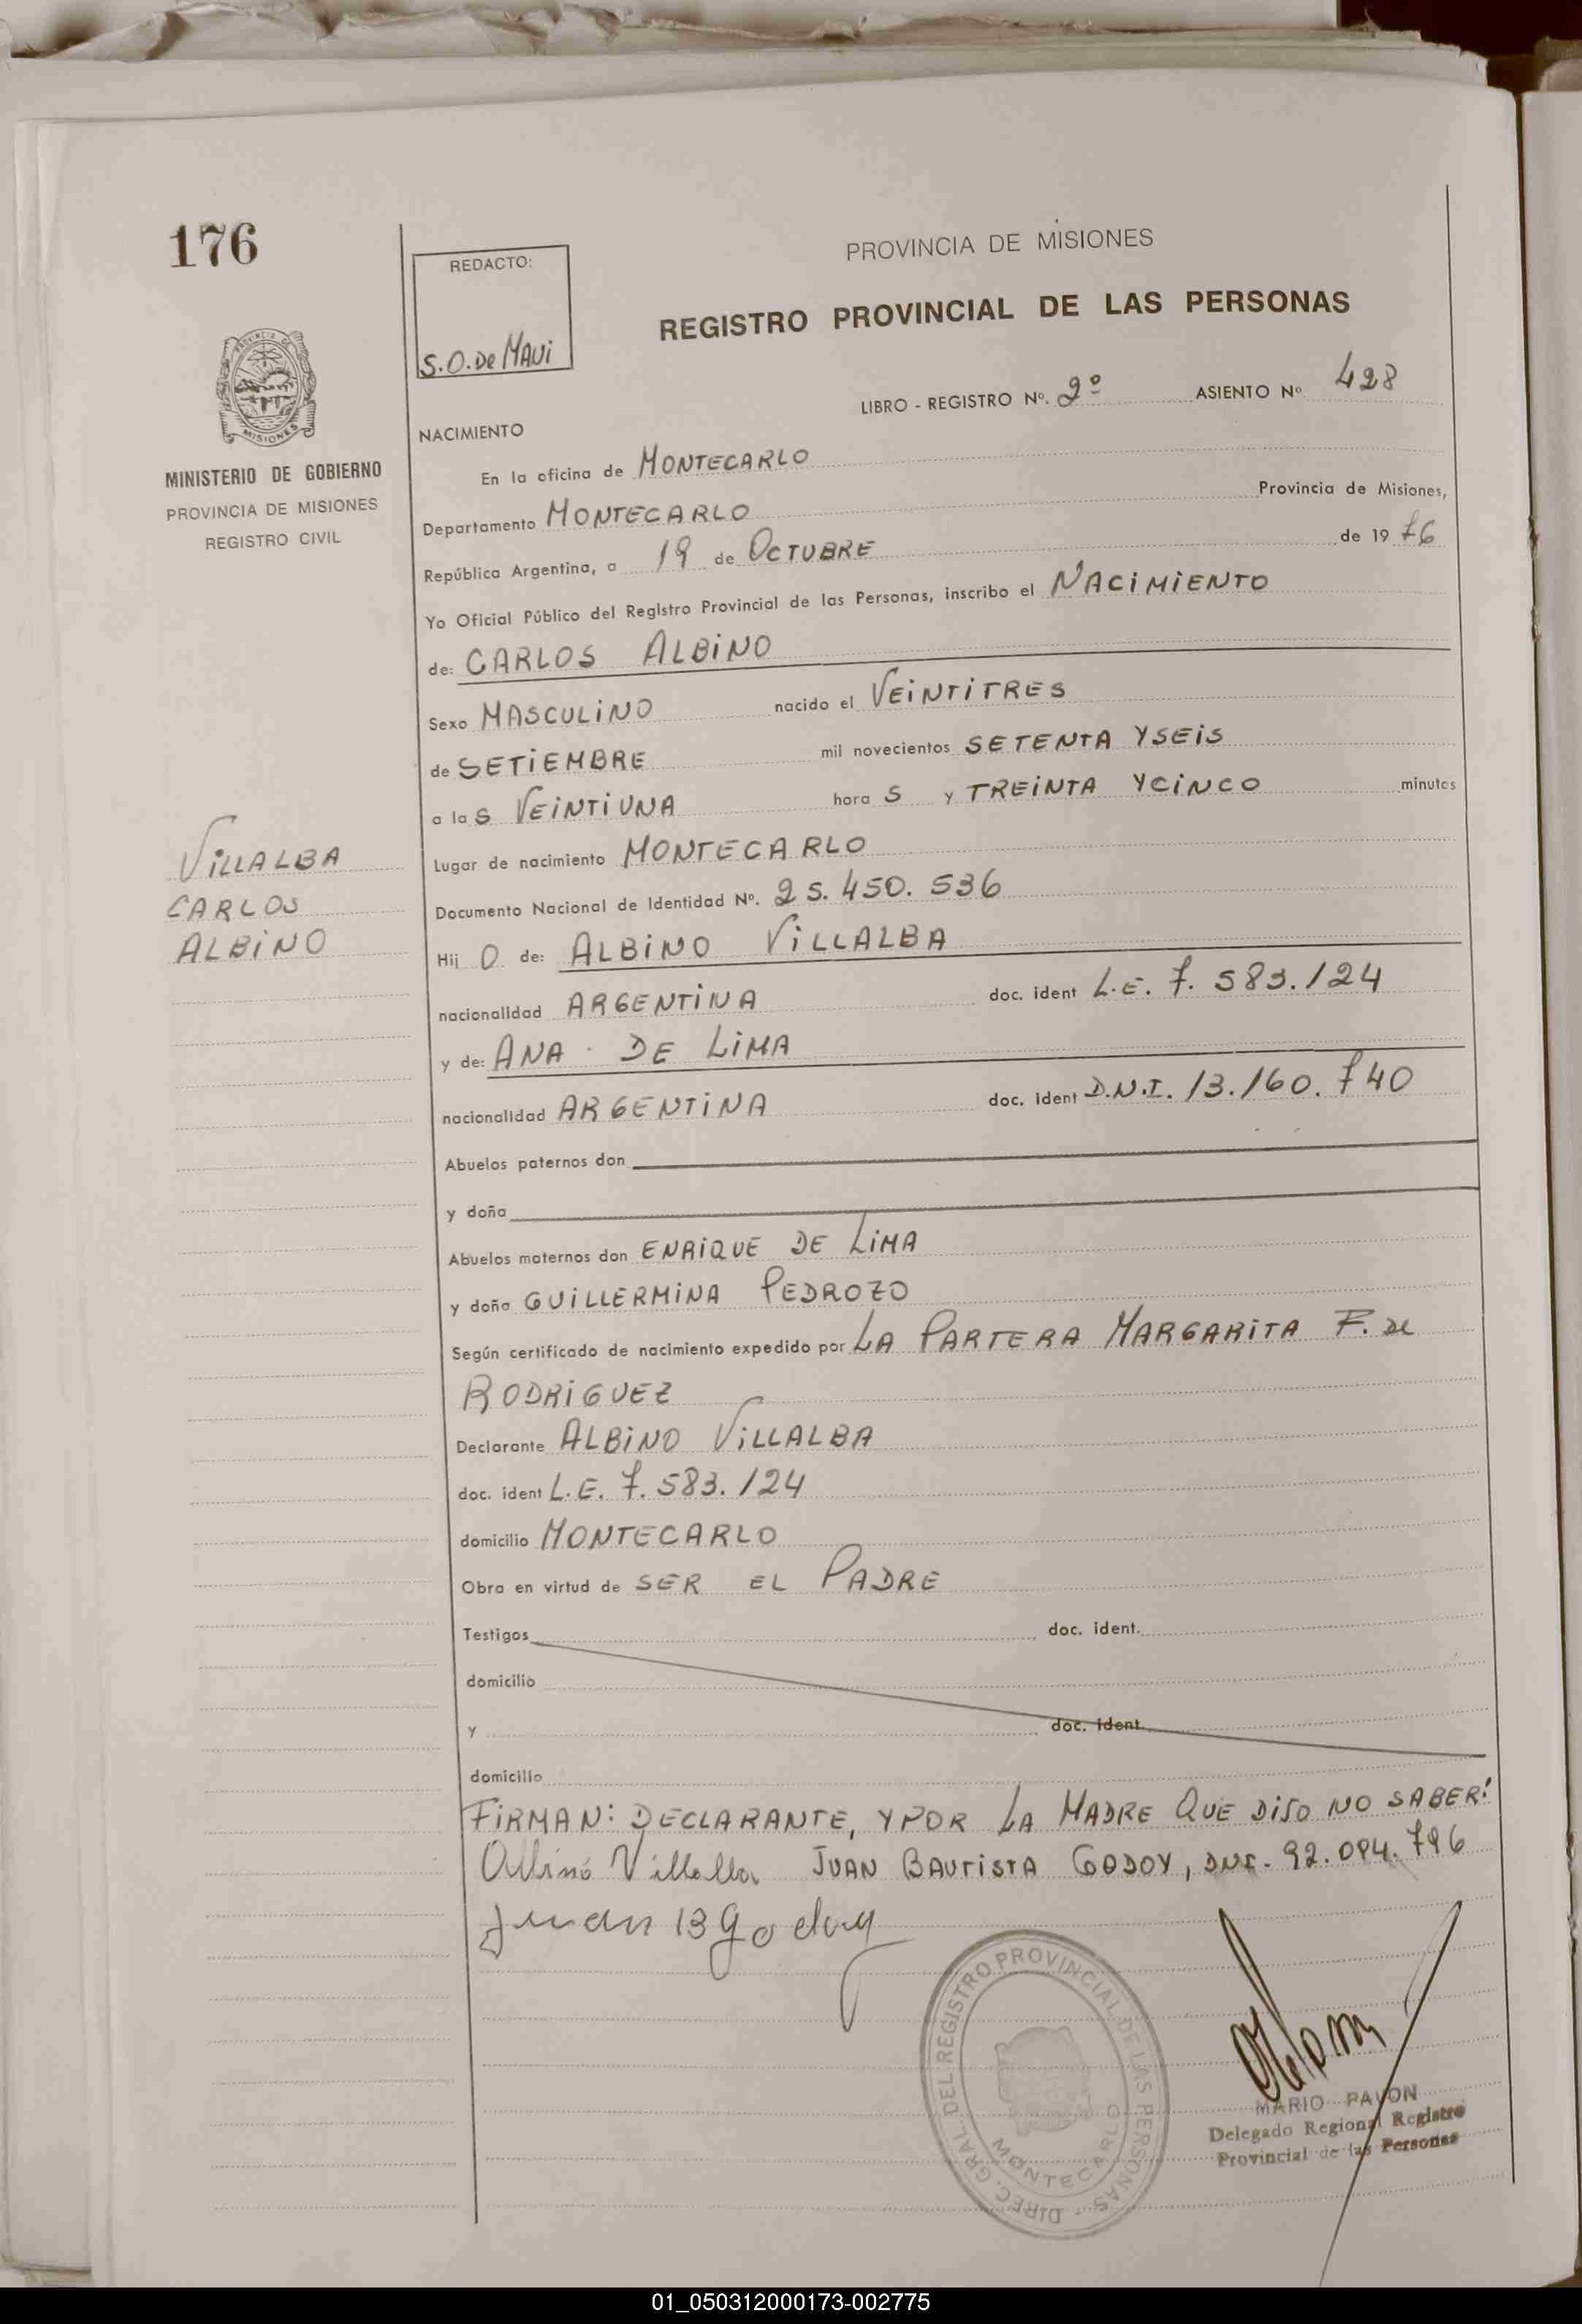 176
REDACTO:
S.O. De MAUi
PROVINCIA DE MISIONES
REGISTRO PROVINCIAL DE LAS PERSONAS
PROVINCIA DE
MISIONES
MINISTERIO DE GOBIERNO
PROVINCIA DE MISIONES
REGISTRO CIVIL
LIBRO - REGISTRO Nº. 2º ASIENTO Nº 428
NACIMIENTO
En la oficina de MONTECARLO
Departamento MONTECARLO Provincia de Misiones,
República Argentina, a 19 de OCTUBRE de 19 76
Yo Oficial Público del Registro Provincial de las Personas, inscribo el NACiMiENTO
de: CARLOS ALBiNO
Sexo MASCULiNO nacido el VEiNTiTRES
de SETiEMBRE mil novecientos SETENTA Y SEiS
a la S VEiNTiUNA hora S y TREiNTA Y CiNCO minutos
Lugar de nacimiento MONTECARLO
Documento Nacional de Identidad Nº. 25.450.536
ViLLALBA
CARLOS
ALBiNO
Hij O de: ALBiNO ViLLALBA
nacionalidad ARGENTiNA doc. ident L.E. 7.583.124
y de: ANA DE LiMA
nacionalidad ARGENTiNA doc. ident D.N.I. 13.160.740
Abuelos paternos don
y doña
Abuelos maternos don ENRiQUE DE LiMA
y doña GUiLLERMiNA PEDROZO
Según certificado de nacimiento expedido por LA PARTERA MARGARiTA F. DE
RODRiGUEZ
Declarante ALBiNO ViLLALBA
doc. ident L.E. 7.583.124
domicilio MONTECARLO
Obra en virtud de SER EL PADRE
Testigos doc. ident.
domicilio
y doc. ident.
domicilio
FiRMAN: DECLARANTE, Y POR LA MADRE QUE DiJO NO SABER:
Albino Villalba JUAN BAUTiSTA GODOY, DNI. 92.094.796
Juan B Godoy
DIREC. GRAL. DEL REGISTRO PROVINCIAL DE LAS PERSONAS
MONTECARLO
MARIO PAVON
Delegado Regional Registro
Provincial de las Personas
01_050312000173-002775